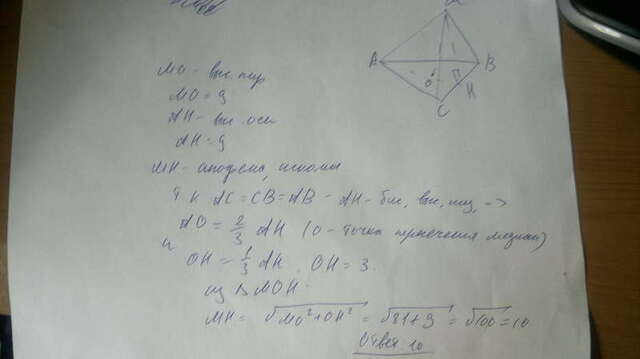 M
A B
O H
C
MO - выс. пир
MO = 9
AH - выс. осн
AH = 9
MH - апофема, искомы
Т к AC = CB = AB - AH - бис, выс, мед, ->
AO = 2/3 AH (O - точка пересечения медиан)
и OH = 1/3 AH, OH = 3.
из Δ MOH.
MH = √MO²+OH² = √81+9 = √100 = 10
Ответ 10